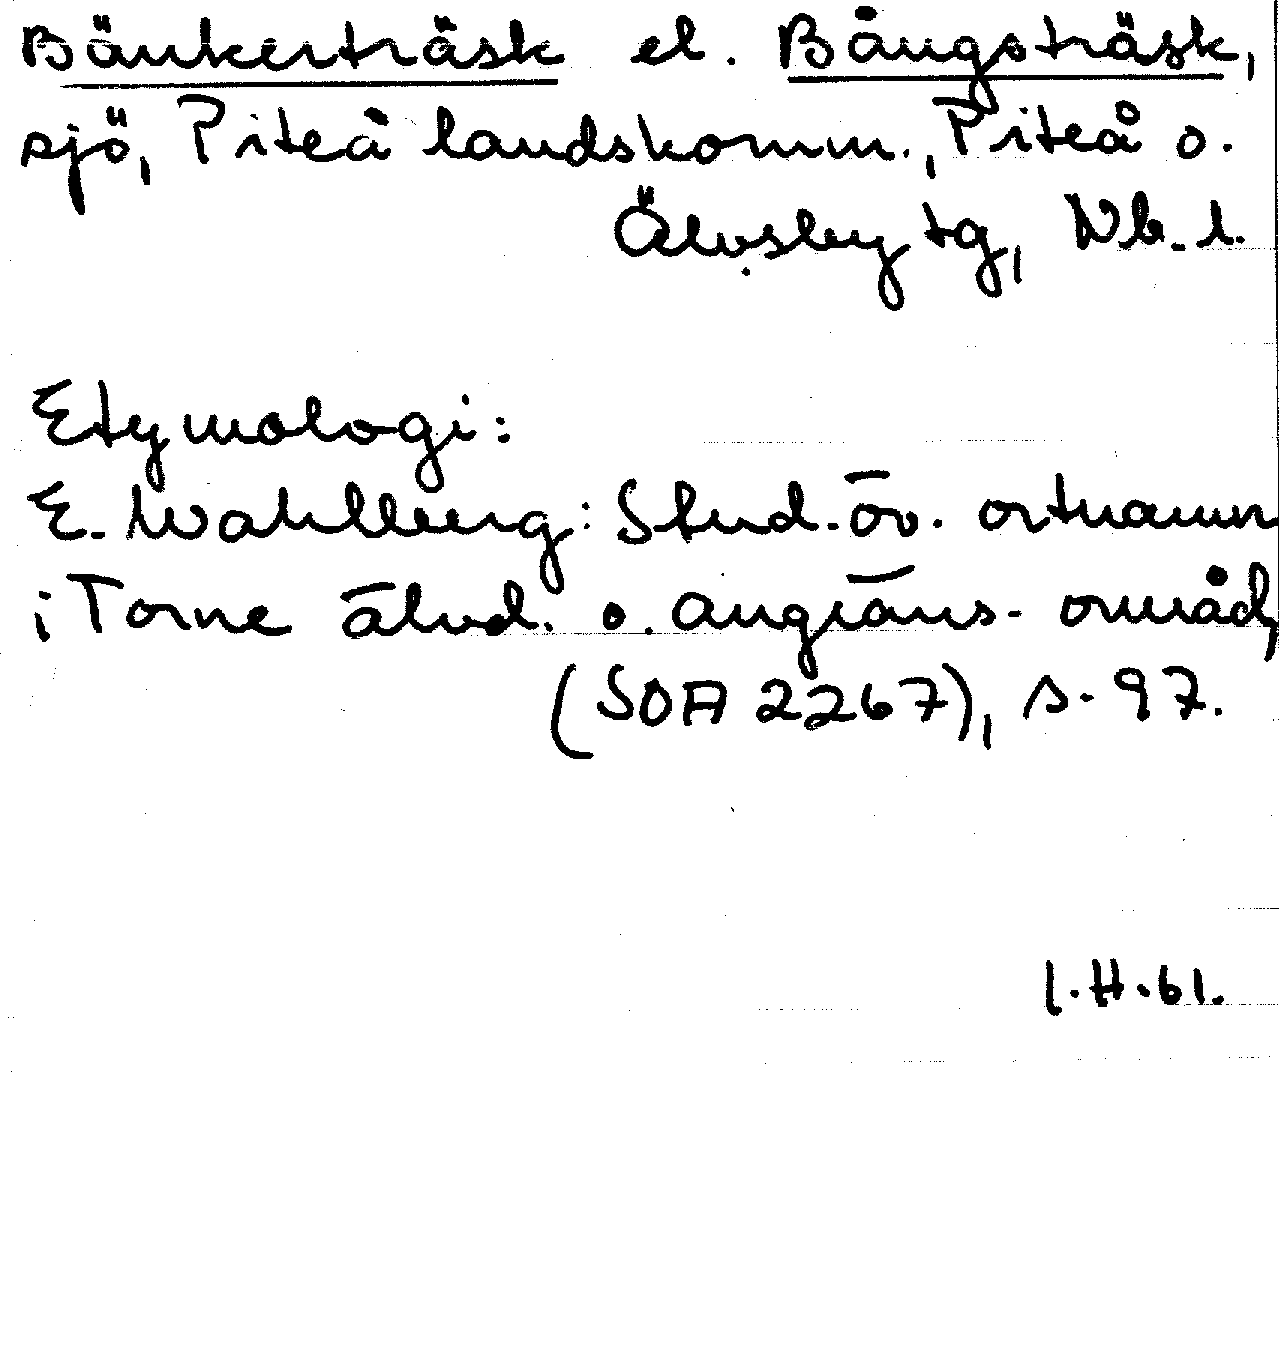 Bänkerträsk el. Bångsträsk,
sjö, Piteå landskomm., Piteå o.
Älvsby tg, Nb. l.
Etymologi:
E. Wahlberg: Stud. öv. ortnamn
i Torne älvd. o. angräns. områd,
(SOA 2267), s. 97.
I.H.61.